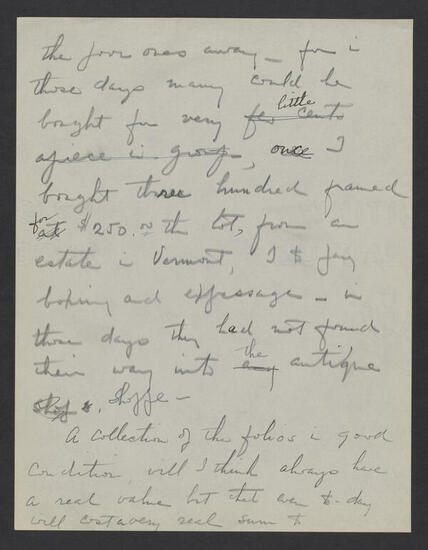 the poor ones away – for in
those days many could be
bought for very few cents little
apiece in groups, once I
bought three hundred framed
at for $250. the lot, from an
estate in Vermont, I to pay
boxing and expressage – in
those days they had not found
their way into any the antique
shops. Shoppe –
A collection of the folios in good
condition, will I think always have
a real value but that even to-day
will cost a very real sum to